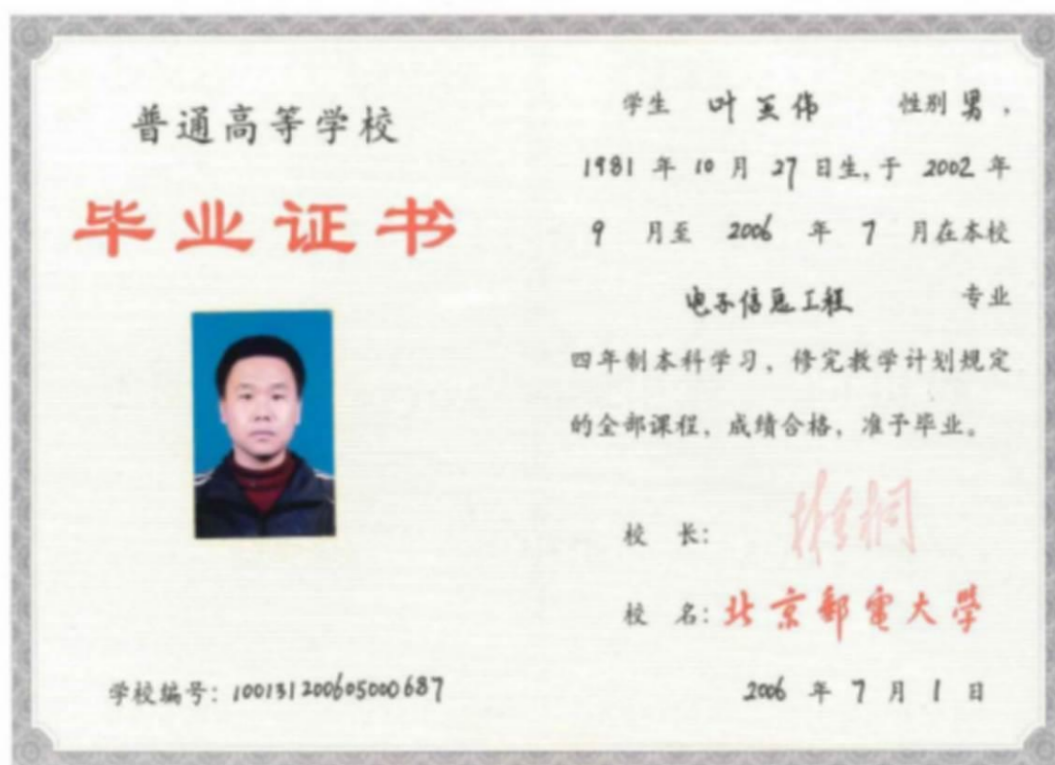 普通高等学校
毕业证书
学校编号：100131200605000687
学生 叶 伟 性别 男，
1981 年 10 月 27 日生，于 2002 年
9 月至 2006 年 7 月在本校
电子信息工程 专业
四年制本科学习，修完教学计划规定
的全部课程，成绩合格，准予毕业。
校 长：
校 名：北京郵電大學
2006 年 7 月 1 日